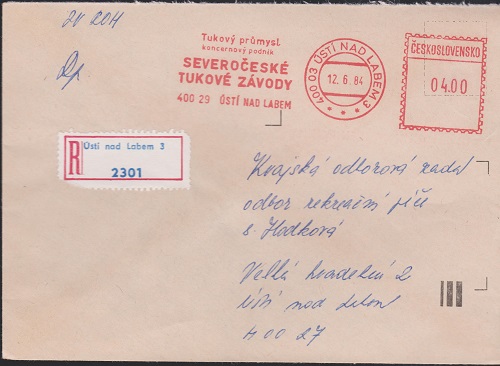 ZV 2011
Dp
Tukový průmysl
koncernový podnik
SEVEROČESKÉ
TUKOVÉ ZÁVODY
400 29 ÚSTÍ NAD LABEM
400 03 ÚSTÍ NAD LABEM 3
12.6.84
ČESKOSLOVENSKO
04.00
R
Ústí nad Labem 3
2301
Krajská odborová rada
odbor rekreační péče
s. Hodková
Velká hradební 2
Ústí nad Labem
400 27